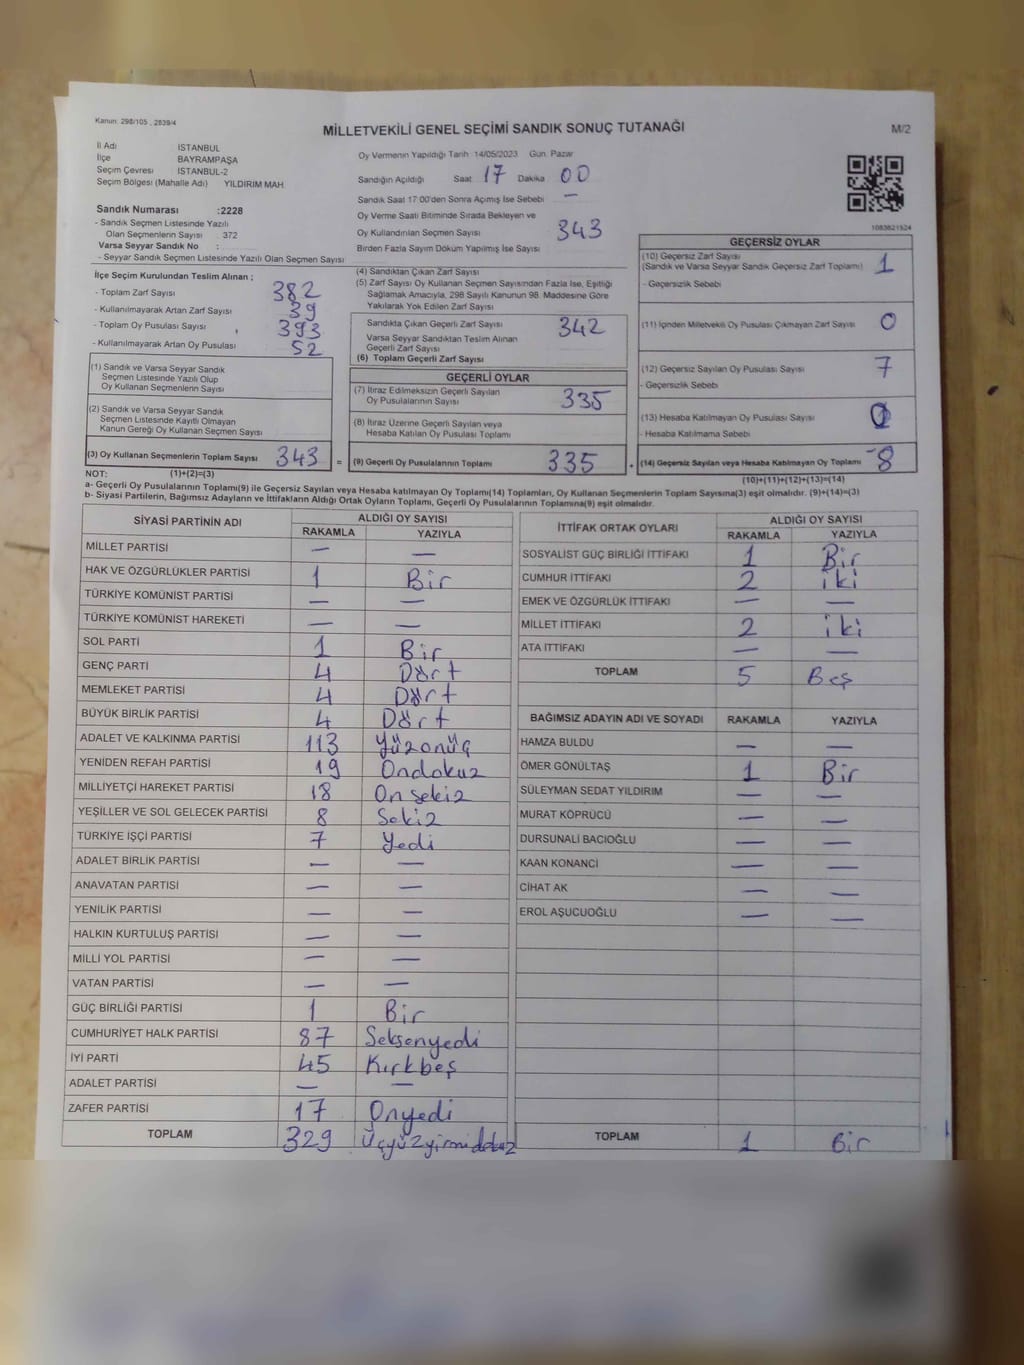 Kanun: 298/105 , 2839/4
MİLLETVEKİLİ GENEL SEÇİMİ SANDIK SONUÇ TUTANAĞI
M/2
İl Adı İSTANBUL
İlçe BAYRAMPAŞA
Seçim Çevresi İSTANBUL-2
Seçim Bölgesi (Mahalle Adı) YILDIRIM MAH.
Sandık Numarası :2228
- Sandık Seçmen Listesinde Yazılı
Olan Seçmenlerin Sayısı : 372
Varsa Seyyar Sandık No :
- Seyyar Sandık Seçmen Listesinde Yazılı Olan Seçmen Sayısı :
Oy Vermenin Yapıldığı Tarih 14/05/2023 Gün: Pazar
Sandığın Açıldığı Saat 17 Dakika 00
Sandık Saat 17:00'den Sonra Açılmış İse Sebebi —
Oy Verme Saati Bitiminde Sırada Bekleyen ve
Oy Kullandırılan Seçmen Sayısı 343
Birden Fazla Sayım Döküm Yapılmış İse Sayısı
1083821524
İlçe Seçim Kurulundan Teslim Alınan ;
- Toplam Zarf Sayısı 382
- Kullanılmayarak Artan Zarf Sayısı 39
- Toplam Oy Pusulası Sayısı 393
- Kullanılmayarak Artan Oy Pusulası 52
(1) Sandık ve Varsa Seyyar Sandık
Seçmen Listesinde Yazılı Olup
Oy Kullanan Seçmenlerin Sayısı
(2) Sandık ve Varsa Seyyar Sandık
Seçmen Listesinde Kayıtlı Olmayan
Kanun Gereği Oy Kullanan Seçmen Sayısı
(3) Oy Kullanan Seçmenlerin Toplam Sayısı 343 =
(4) Sandıktan Çıkan Zarf Sayısı
(5) Zarf Sayısı Oy Kullanan Seçmen Sayısından Fazla İse, Eşitliği
Sağlamak Amacıyla, 298 Sayılı Kanunun 98. Maddesine Göre
Yakılarak Yok Edilen Zarf Sayısı
Sandıkta Çıkan Geçerli Zarf Sayısı 342
Varsa Seyyar Sandıktan Teslim Alınan
Geçerli Zarf Sayısı
(6) Toplam Geçerli Zarf Sayısı
GEÇERLİ OYLAR
(7) İtiraz Edilmeksizin Geçerli Sayılan
Oy Pusulalarının Sayısı 335
(8) İtiraz Üzerine Geçerli Sayılan veya
Hesaba Katılan Oy Pusulası Toplamı
(9) Geçerli Oy Pusulalarının Toplamı 335 +
GEÇERSİZ OYLAR
(10) Geçersiz Zarf Sayısı 1
(Sandık ve Varsa Seyyar Sandık Geçersiz Zarf Toplamı)
- Geçersizlik Sebebi
(11) İçinden Milletvekili Oy Pusulası Çıkmayan Zarf Sayısı 0
(12) Geçersiz Sayılan Oy Pusulası Sayısı 7
- Geçersizlik Sebebi
(13) Hesaba Katılmayan Oy Pusulası Sayısı
- Hesaba Katılmama Sebebi
(14) Geçersiz Sayılan veya Hesaba Katılmayan Oy Toplamı 8
NOT: (1)+(2)=(3)
(10)+(11)+(12)+(13)=(14)
a- Geçerli Oy Pusulalarının Toplamı(9) ile Geçersiz Sayılan veya Hesaba katılmayan Oy Toplamı(14) Toplamları, Oy Kullanan Seçmenlerin Toplam Sayısına(3) eşit olmalıdır. (9)+(14)=(3)
b- Siyasi Partilerin, Bağımsız Adayların ve İttifakların Aldığı Ortak Oyların Toplamı, Geçerli Oy Pusulalarının Toplamına(9) eşit olmalıdır.
SİYASİ PARTİNİN ADI ALDIĞI OY SAYISI
RAKAMLA YAZIYLA
MİLLET PARTİSİ — —
HAK VE ÖZGÜRLÜKLER PARTİSİ 1 Bir
TÜRKİYE KOMÜNİST PARTİSİ — —
TÜRKİYE KOMÜNİST HAREKETİ — —
SOL PARTİ 1 Bir
GENÇ PARTİ 4 Dört
MEMLEKET PARTİSİ 4 Dört
BÜYÜK BİRLİK PARTİSİ 4 Dört
ADALET VE KALKINMA PARTİSİ 113 Yüzonüç
YENİDEN REFAH PARTİSİ 19 Ondokuz
MİLLİYETÇİ HAREKET PARTİSİ 18 Onsekiz
YEŞİLLER VE SOL GELECEK PARTİSİ 8 Sekiz
TÜRKİYE İŞÇİ PARTİSİ 7 Yedi
ADALET BİRLİK PARTİSİ — —
ANAVATAN PARTİSİ — —
YENİLİK PARTİSİ — —
HALKIN KURTULUŞ PARTİSİ — —
MİLLİ YOL PARTİSİ — —
VATAN PARTİSİ — —
GÜÇ BİRLİĞİ PARTİSİ 1 Bir
CUMHURİYET HALK PARTİSİ 87 Seksenyedi
İYİ PARTİ 45 Kırkbeş
ADALET PARTİSİ — —
ZAFER PARTİSİ 17 Onyedi
TOPLAM 329 Üçyüzyirmidokuz
İTTİFAK ORTAK OYLARI ALDIĞI OY SAYISI
RAKAMLA YAZIYLA
SOSYALİST GÜÇ BİRLİĞİ İTTİFAKI 1 Bir
CUMHUR İTTİFAKI 2 iki
EMEK VE ÖZGÜRLÜK İTTİFAKI — —
MİLLET İTTİFAKI 2 iki
ATA İTTİFAKI — —
TOPLAM 5 Beş
BAĞIMSIZ ADAYIN ADI VE SOYADI RAKAMLA YAZIYLA
HAMZA BULDU — —
ÖMER GÖNÜLTAŞ 1 Bir
SÜLEYMAN SEDAT YILDIRIM — —
MURAT KÖPRÜCÜ — —
DURSUNALİ BACIOĞLU — —
KAAN KONANCİ — —
CİHAT AK — —
EROL AŞUCUOĞLU — —
TOPLAM 1 Bir